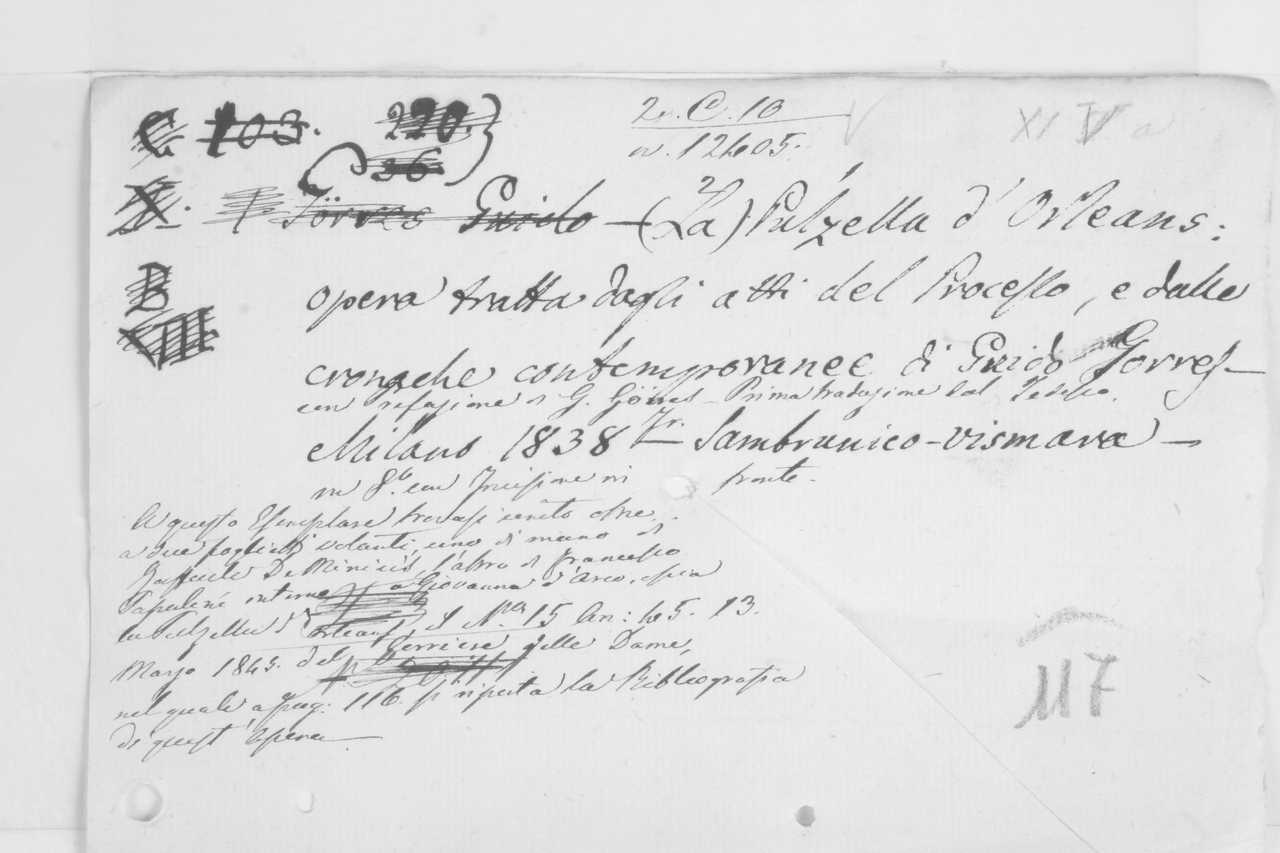 C 103. 220.
36
2. C. 10
n. 12405.
XI V a
X. Görres Guido — (La) Pulzella d'Orleans:
B
opera tratta dagli atti del Processo, e dalle
VIII
cronache contemporanee di Guido Gorres —
con prefazione di G. Görres — Prima traduzione dal Tedesco.
Milano 1838 — Sambrunico-Vismara —
in 8.º con Incisione in fronte.
A questo Esemplare trovasi unito oltre
a due foglietti volanti, uno di mano di
Raffaele De Minicis, l'altro di Francesco
Papalini intorno a Giovanna d'Arco, ossia
la Pulzella d'Orleans, il N.º 15 An: 45. 13.
Marzo 1845. del Corriere delle Dame,
nel quale a pag: 116. si riporta la Bibliografia
di quest'opera —
117